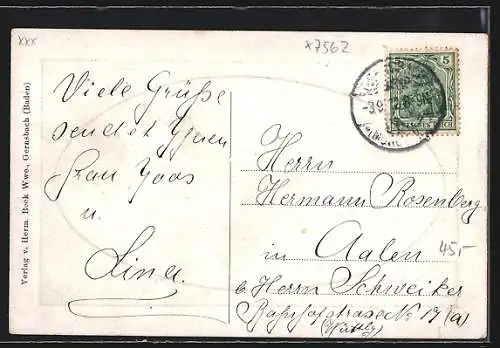 xxx
x7562
Verlag v. Herm. Bock Wwe., Gernsbach (Baden)
Viele Grüße
sendet Ihnen
Frau Joos
u.
Lina.
5
Herrn
Hermann Rosenberg
in Aalen
45,-
b. Herrn Schweiker
Bahnhofstrasse No 17 (a)
(Württbg)